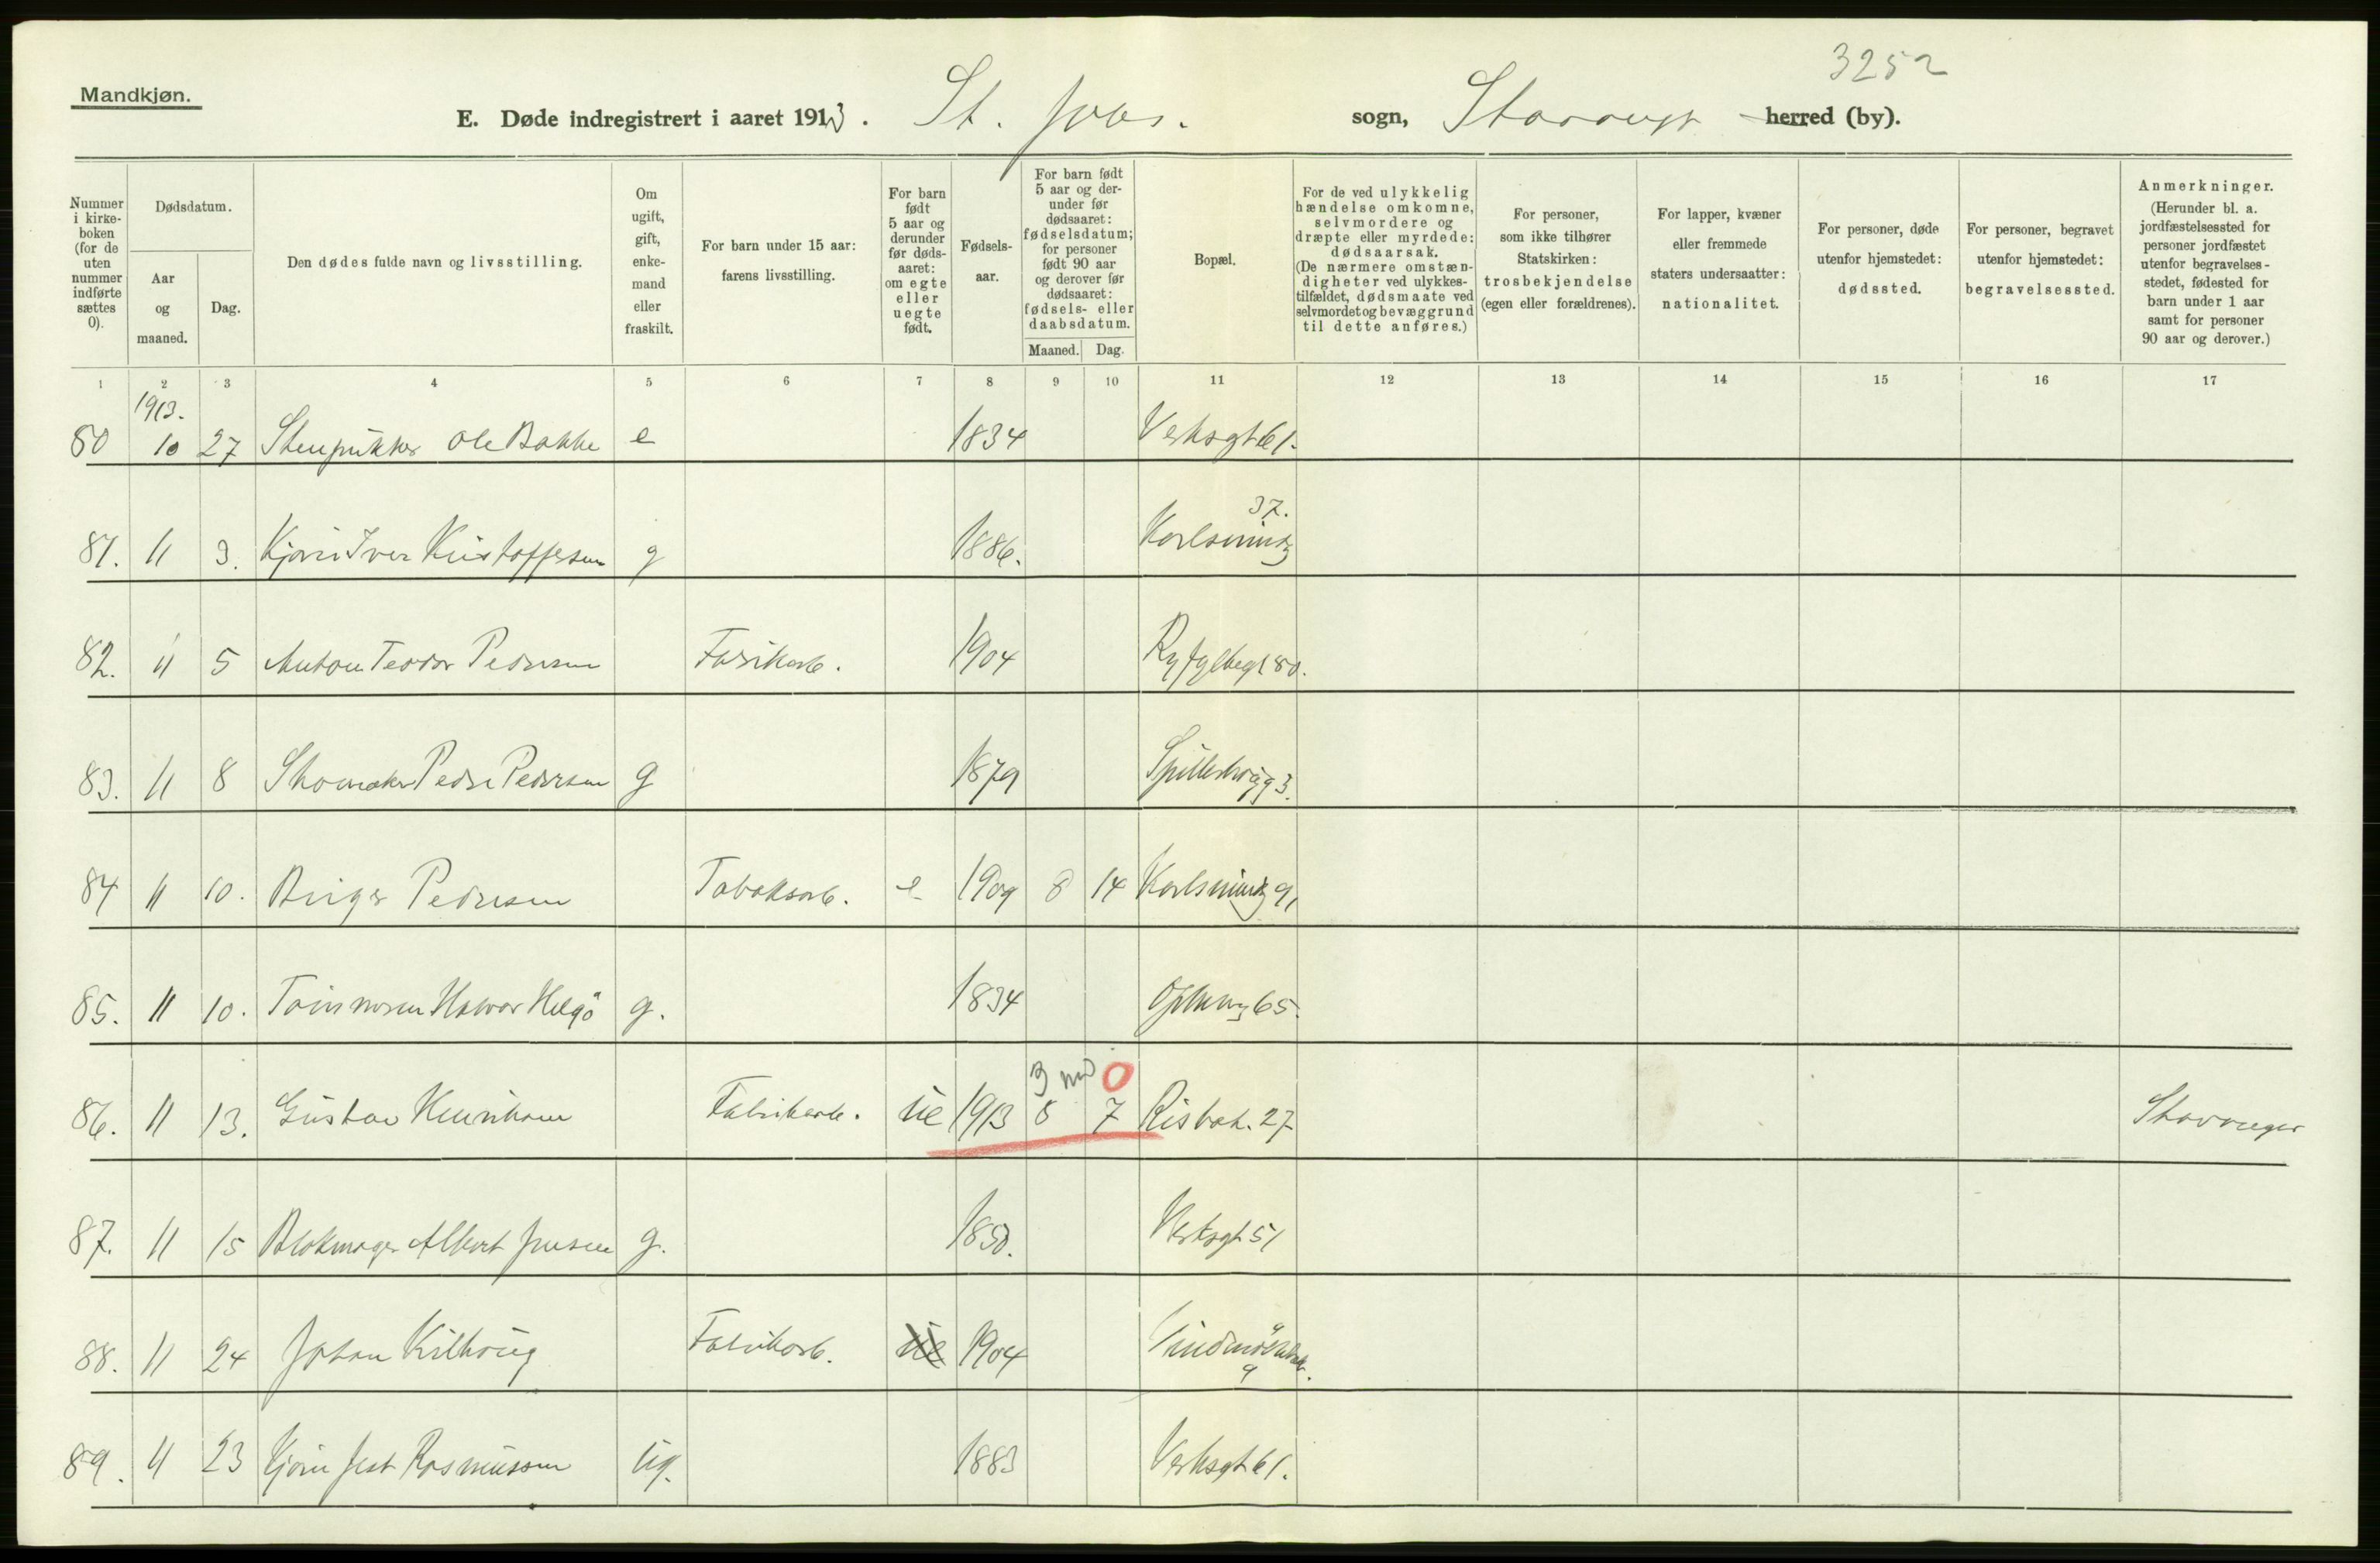 3252
Mandkjøn.
E. Døde indregistrert i aaret 1913. St. sogn, herred (by).
Nummer i kirkeboken (for de uten nummer indførte sættes 0).
Dødsdatum.
Aar og maaned.
Dag.
Den dødes fulde navn og livsstilling.
Om ugift, gift, enkemand eller fraskilt.
For barn under 15 aar: farens livsstilling.
For barn født 5 aar og derunder før dødsaaret: om egte eller uegte født.
Fødselsaar.
For barn født 5 aar og derunder før dødsaaret: fødselsdatum; for personer født 90 aar og derover før dødsaaret: fødsels- eller daabsdatum.
Maaned. Dag.
Bopæl.
For de ved ulykkelig hændelse omkomne, selvmordere og dræpte eller myrdede: dødsaarsak. (De nærmere omstændigheter ved ulykkestilfældet, dødsmaate ved selvmordet og bevæggrund til dette anføres.)
For personer, som ikke tilhører Statskirken: trosbekjendelse (egen eller forældrenes).
For lapper, kvæner eller fremmede staters undersaatter: nationalitet.
For personer, døde utenfor hjemstedet: dødssted.
For personer, begravet utenfor hjemstedet: begravelsessted.
Anmerkninger. (Herunder bl. a. jordfæstelsessted for personer jordfæstet utenfor begravelsesstedet, fødested for barn under 1 aar samt for personer 90 aar og derover.)
1 2 3 4 5 6 7 8 9 10 11 12 13 14 15 16 17
1913.
80 10 27 Ole Bakke e 1834 Verksgt 61.
37.
81. 11 3. Iver Kristoffersen g 1886.
82. 11 5 Anton Teodor Pedersen Fabrikarb. 1904 Ryfylkegt 80.
83. 11 8 Skomaker Peder Pedersen g 1879 3.
84 11 10. Birger Pedersen Tobaksarb. e 1909 8 14 91
85. 11 10. Halvor Helgö g. 1834 65.
3 md 0
86. 11 13. Gustav Henriksen Fabrikarb. ue 1913 8 7 Risbak. 27 Stavanger
87. 11 15 Blokmager Albert Jensen g. 1850. Verksgt 51
88. 11 24 Johan Fabrikarb. ue 1904
9
89. 11 23 Rasmussen ug. 1883 Verksgt 61.